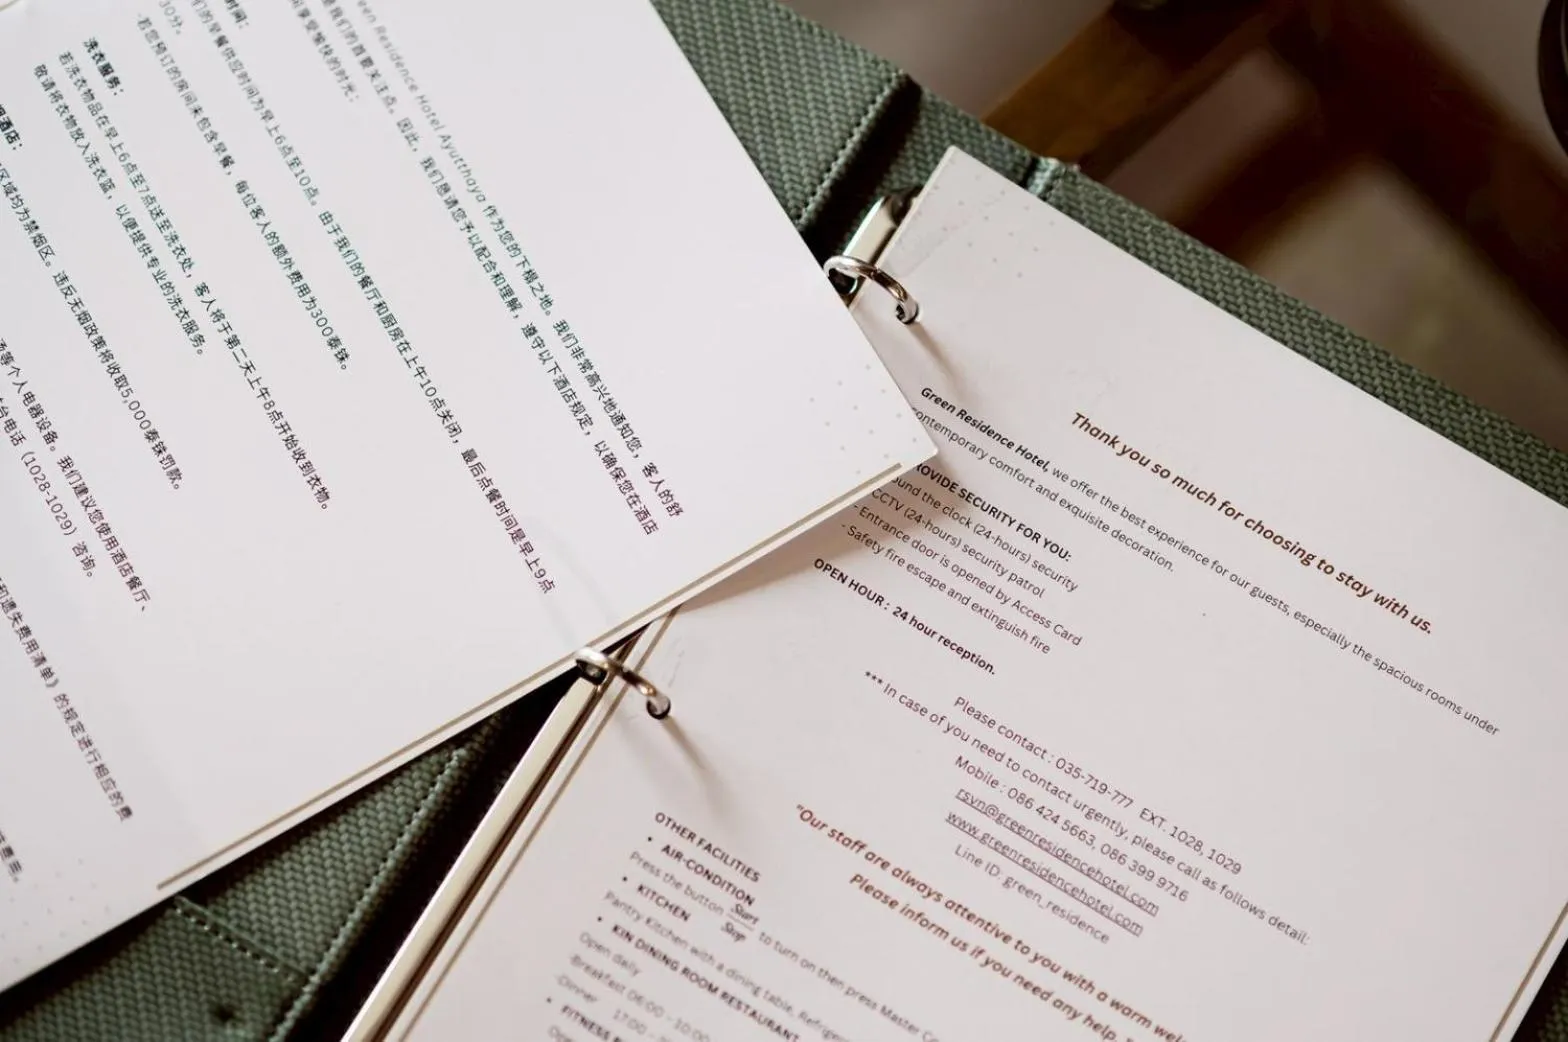 Green Residence Hotel Ayutthaya 作为您的下榻之地。我们非常高兴地通知您，客人的舒
是我们的首要关注点。因此，我们恳请您予以配合和理解，遵守以下酒店规定，以确保您在酒店
享愉快的时光：
时间：
早餐供应时间为早上6点至10点。由于我们的餐厅和厨房在上午10点关闭，最后点餐时间是早上9点
30分。
若您预订的房间未包含早餐，每位客人的额外费用为300泰铢。
洗衣服务：
若洗衣物品在早上6点至7点送至洗衣处，客人将于第二天上午8点开始收到衣物。
敬请将衣物放入洗衣篮，以便提供专业的洗衣服务。
酒店：
区域均为禁烟区。违反无烟政策将收取5,000泰铢罚款。
等个人电器设备。我们建议您使用酒店餐厅、
台电话（1028-1029）咨询。
和遗失费用清单》的规定进行相应的费
Thank you so much for choosing to stay with us.
Green Residence Hotel, we offer the best experience for our guests, especially the spacious rooms under
contemporary comfort and exquisite decoration.
PROVIDE SECURITY FOR YOU:
ound the clock (24-hours) security
CCTV (24-hours) security patrol
- Entrance door is opened by Access Card
- Safety fire escape and extinguish fire
OPEN HOUR : 24 hour reception.
*** In case of you need to contact urgently, please call as follows detail:
Please contact : 035-719-777 EXT. 1028, 1029
Mobile : 086 424 5663, 086 399 9716
rsvn@greenresidencehotel.com
www.greenresidencehotel.com
Line ID: green_residence
"Our staff are always attentive to you with a warm wel
Please inform us if you need any help.
OTHER FACILITIES
• AIR-CONDITION
Press the button Start Stop to turn on then press Master
• KITCHEN
Pantry Kitchen with a dining table, Refriger
• KIN DINING ROOM RESTAURANT
Open daily
Breakfast 06:00 - 10:00
Dinner 17:00 -
• FITNESS